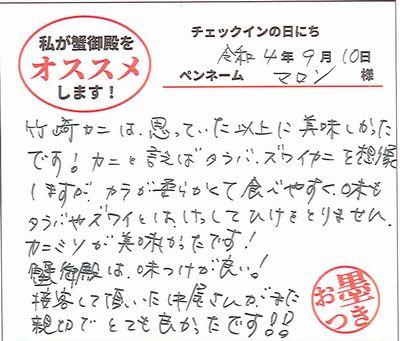 私が蟹御殿を
オススメ
します!
チェックインの日にち
令和4年9月10日
ペンネーム マロン 様
竹崎カニは、思っていた以上に美味しかった
です!カニと言えばタラバ、ズワイカニを想像
しますが、カラが柔らかくて食べやすく、味も
タラバやズワイとは、けっしてひけをとりません。
カニミソが美味かったです!
蟹御殿は、味つけが良い!
接客して頂いた中尾さんが、また
親切でとても良かったです!!
お墨つき